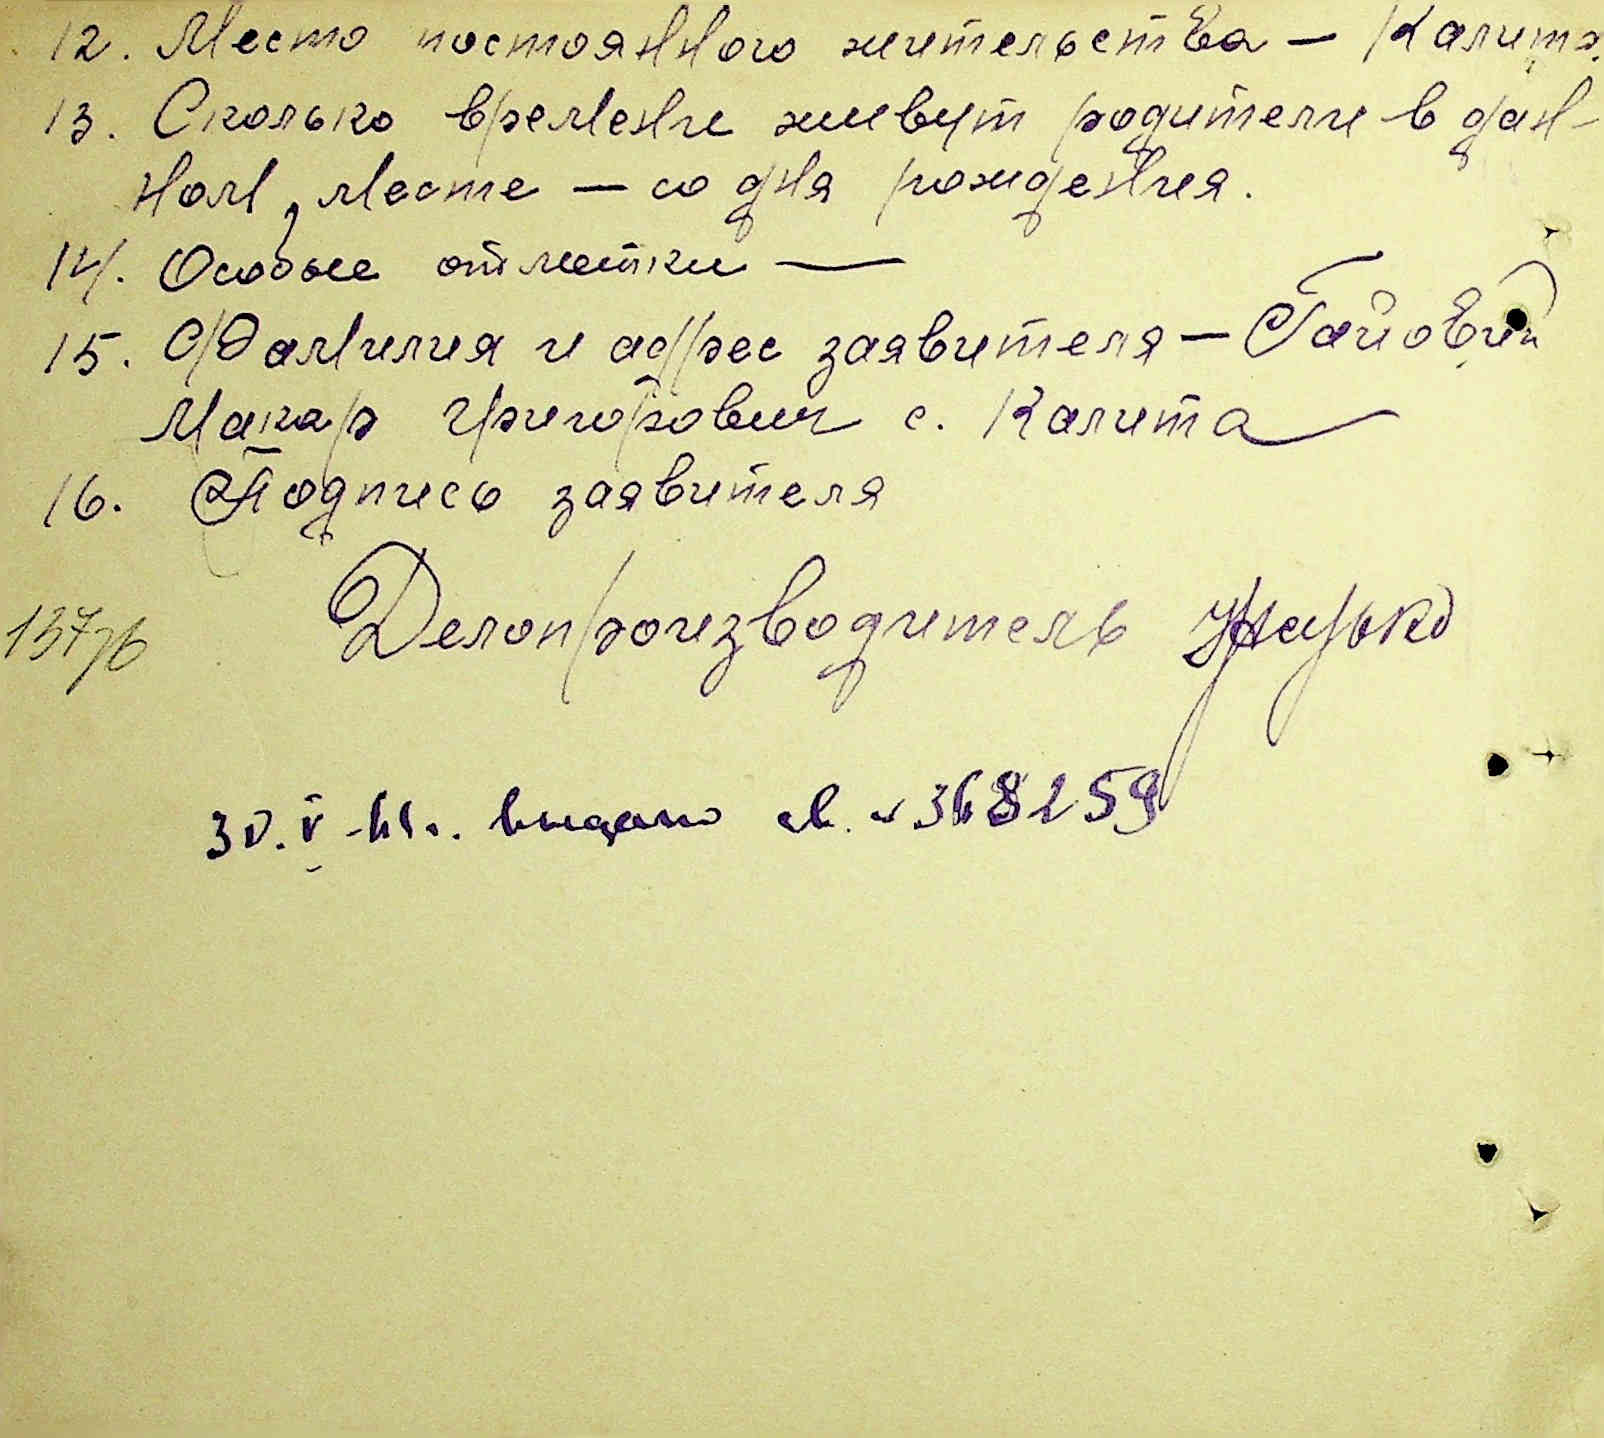 12. Место постоянного жительства – Калита.
13. Сколько времени живут родители в дан-
ном месте – со дня рождения.
14. Особые отметки —
15. Фамилия и адрес заявителя – Гайовий
Макар Григорович с. Калита
16. Подпись заявителя
Делопроизводитель
30. V
видано св. 368259